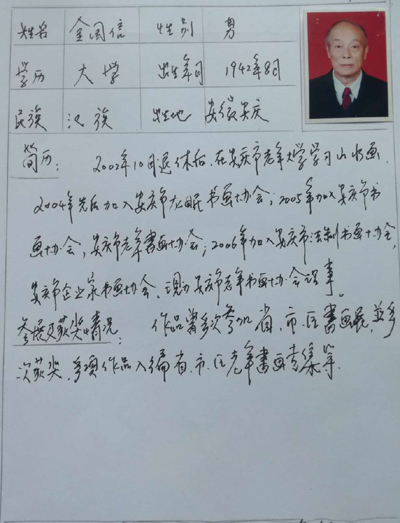 姓名 金国信 性别 男
学历 大学 出生年月 1942年8月
民族 汉族 出生地 安徽安庆
简历: 2002年10月退休后,在安庆市老年大学学习山水画.
2004年先后加入安庆市农民书画协会;2005年加入安庆市书
画协会,安庆市老年书画协会;2006年加入安庆市法制书画协会,
安庆市企业家书画协会.现为安庆市老年书画协会理事。
参展及获奖情况: 作品曾多次参加省,市,区书画展,並多
次获奖,多项作品入编省.市.区老年书画专集等.